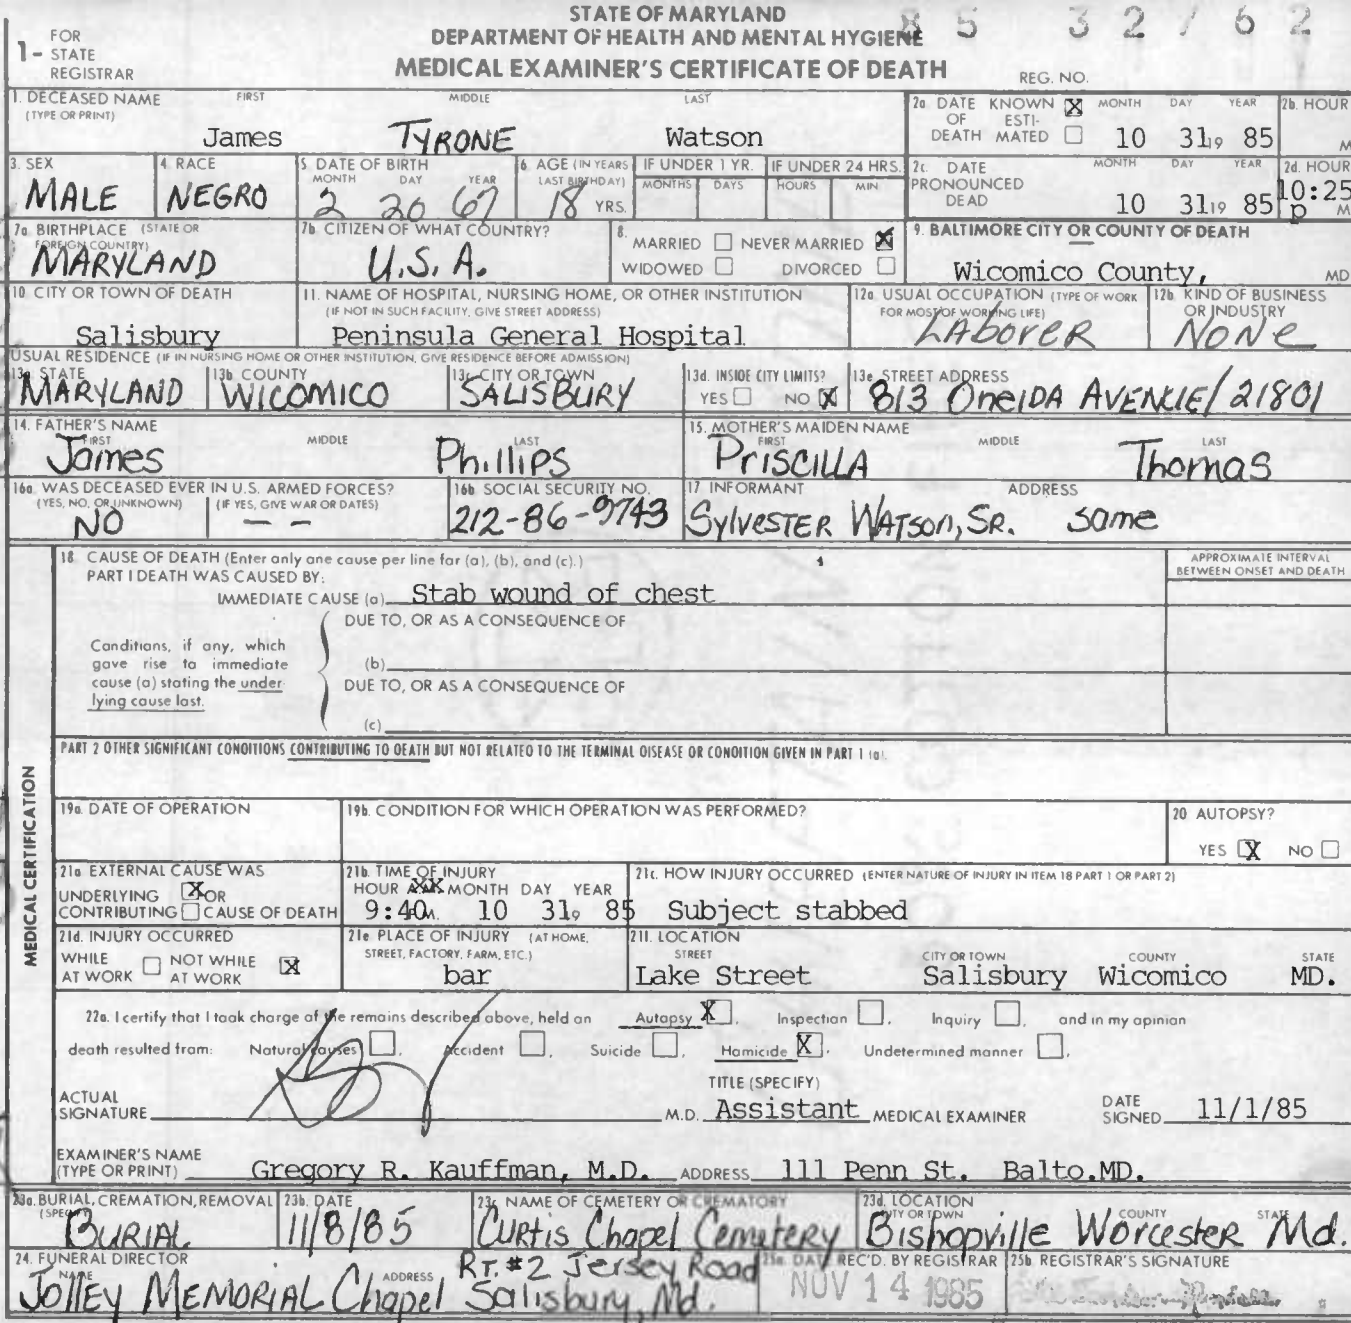 STATE OF MARYLAND
DEPARTMENT OF HEALTH AND MENTAL HYGIENE
MEDICAL EXAMINER'S CERTIFICATE OF DEATH
85 32762
1- FOR STATE REGISTRAR
REG. NO.
1. DECEASED NAME (TYPE OR PRINT) FIRST MIDDLE LAST
James TYRONE Watson
2a. DATE OF DEATH KNOWN X ESTIMATED MONTH DAY YEAR
10 31 19 85
2b. HOUR M
3. SEX
MALE
4. RACE
NEGRO
5. DATE OF BIRTH MONTH DAY YEAR
2 20 67
6. AGE (IN YEARS LAST BIRTHDAY)
18 YRS.
IF UNDER 1 YR. MONTHS DAYS
IF UNDER 24 HRS. HOURS MIN
2c. DATE PRONOUNCED DEAD MONTH DAY YEAR
10 31 19 85
2d. HOUR
10:25 p M
7a. BIRTHPLACE (STATE OR FOREIGN COUNTRY)
MARYLAND
7b. CITIZEN OF WHAT COUNTRY?
U.S.A.
8. MARRIED NEVER MARRIED X
WIDOWED DIVORCED
9. BALTIMORE CITY OR COUNTY OF DEATH
Wicomico County, MD
10. CITY OR TOWN OF DEATH
Salisbury
11. NAME OF HOSPITAL, NURSING HOME, OR OTHER INSTITUTION
(IF NOT IN SUCH FACILITY, GIVE STREET ADDRESS)
Peninsula General Hospital
12a. USUAL OCCUPATION (TYPE OF WORK FOR MOST OF WORKING LIFE)
LABORER
12b. KIND OF BUSINESS OR INDUSTRY
NONE
USUAL RESIDENCE (IF IN NURSING HOME OR OTHER INSTITUTION, GIVE RESIDENCE BEFORE ADMISSION)
13a. STATE
MARYLAND
13b. COUNTY
WICOMICO
13c. CITY OR TOWN
SALISBURY
13d. INSIDE CITY LIMITS?
YES NO X
13e. STREET ADDRESS
813 ONEIDA AVENUE/21801
14. FATHER'S NAME FIRST MIDDLE LAST
James Phillips
15. MOTHER'S MAIDEN NAME FIRST MIDDLE LAST
PRISCILLA Thomas
16a. WAS DECEASED EVER IN U.S. ARMED FORCES?
(YES, NO, OR UNKNOWN) (IF YES, GIVE WAR OR DATES)
NO - -
16b. SOCIAL SECURITY NO.
212-86-9743
17. INFORMANT ADDRESS
SYLVESTER WATSON, SR. same
MEDICAL CERTIFICATION
18. CAUSE OF DEATH (Enter only one cause per line for (a), (b), and (c).)
APPROXIMATE INTERVAL BETWEEN ONSET AND DEATH
PART I DEATH WAS CAUSED BY:
IMMEDIATE CAUSE (a) Stab wound of chest
DUE TO, OR AS A CONSEQUENCE OF
Conditions, if any, which gave rise to immediate cause (a) stating the underlying cause last.
(b)
DUE TO, OR AS A CONSEQUENCE OF
(c)
PART 2 OTHER SIGNIFICANT CONDITIONS CONTRIBUTING TO DEATH BUT NOT RELATED TO THE TERMINAL DISEASE OR CONDITION GIVEN IN PART 1 (a).
19a. DATE OF OPERATION
19b. CONDITION FOR WHICH OPERATION WAS PERFORMED?
20 AUTOPSY?
YES X NO
21a. EXTERNAL CAUSE WAS
UNDERLYING X OR
CONTRIBUTING CAUSE OF DEATH
21b. TIME OF INJURY
HOUR A.M. MONTH DAY YEAR
9:40 P.M. 10 31 19 85
21c. HOW INJURY OCCURRED (ENTER NATURE OF INJURY IN ITEM 18 PART 1 OR PART 2)
Subject stabbed
21d. INJURY OCCURRED
WHILE AT WORK NOT WHILE AT WORK X
21e. PLACE OF INJURY (AT HOME, STREET, FACTORY, FARM, ETC.)
bar
21f. LOCATION
STREET CITY OR TOWN COUNTY STATE
Lake Street Salisbury Wicomico MD.
22a. I certify that I took charge of the remains described above, held an Autopsy X, Inspection, Inquiry, and in my opinion
death resulted from: Natural causes, Accident, Suicide, Homicide X, Undetermined manner.
ACTUAL SIGNATURE M.D.
TITLE (SPECIFY)
Assistant MEDICAL EXAMINER
DATE SIGNED 11/1/85
EXAMINER'S NAME (TYPE OR PRINT) Gregory R. Kauffman, M.D. ADDRESS 111 Penn St. Balto.MD.
23a. BURIAL, CREMATION, REMOVAL (SPECIFY)
BURIAL
23b. DATE
11/8/85
23c. NAME OF CEMETERY OR CREMATORY
Curtis Chapel Cemetery
23d. LOCATION CITY OR TOWN COUNTY STATE
Bishopville Worcester Md.
24. FUNERAL DIRECTOR NAME ADDRESS
JOLLEY MEMORIAL Chapel RT.#2 Jersey Road
Salisbury, Md.
25a. DATE REC'D. BY REGISTRAR
NOV 14 1985
25b. REGISTRAR'S SIGNATURE